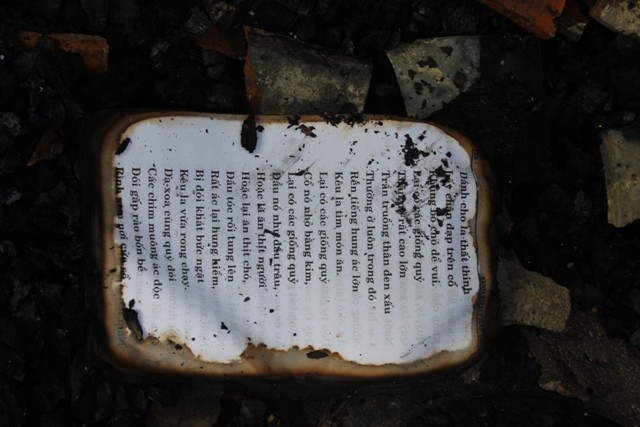 Đánh cho la thất thinh
chân đạp trên cổ
bố chó để vui.
Lại có các giống quỷ
rất cao lớn
Trần truồng thân đen xấu
Thường ở luôn trong đó
Rền tiếng hung ác lớn
Kêu la tìm món ăn.
Lại có các giống quỷ
Cổ nó nhỏ bằng kim,
Lại có các giống quỷ
Đầu nó như đầu trâu,
Hoặc là ăn thịt người
Hoặc lại ăn thịt chó,
Đầu tóc rối tung lên
Rất ác lại hung hiểm,
Bị đói khát bức ngặt
Kêu la vừa rong chạy.
Dạ-xoa cùng quỷ đói
Các chim muông ác độc
Đói gấp rảo bốn bề
Rình xem nơi cửa sổ,